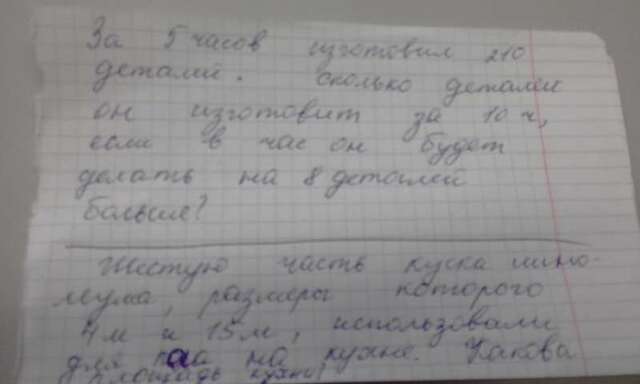 За 5 часов изготовил 210
деталей. сколько деталей
он изготовит за 10 ч,
если в час он будет
делать на 8 деталей
больше?
Шестую часть куска лино-
леума, размеры которого
4 м и 15 м, использовали
для пола на кухне. Какова
площадь кухни?